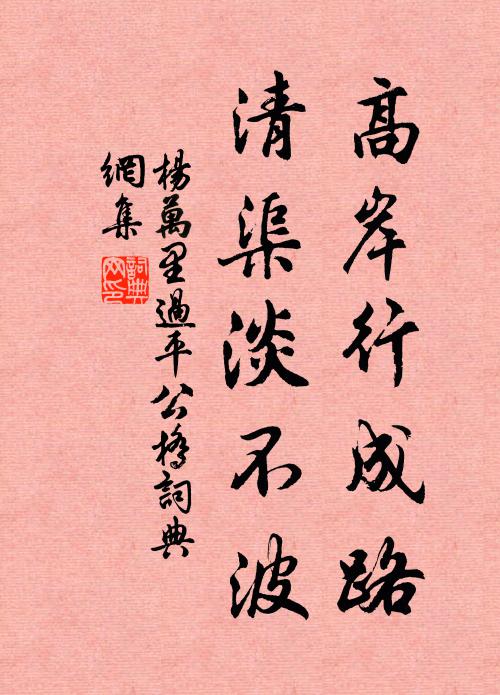 高岸行成路
清渠淡不波
楊萬里過平公橋詞典
網集
詞典
网印